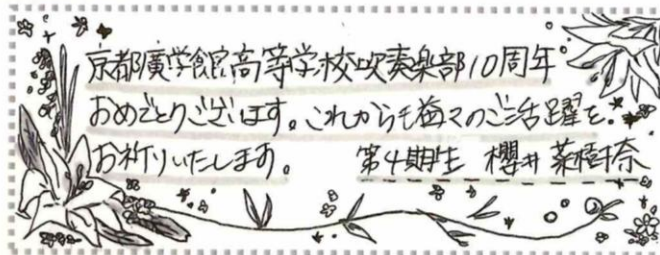 京都廣学館高等学校吹奏楽部10周年
おめでとうございます。これからも益々のご活躍を
お祈りいたします。 第4期生 櫻井 菜樹奈